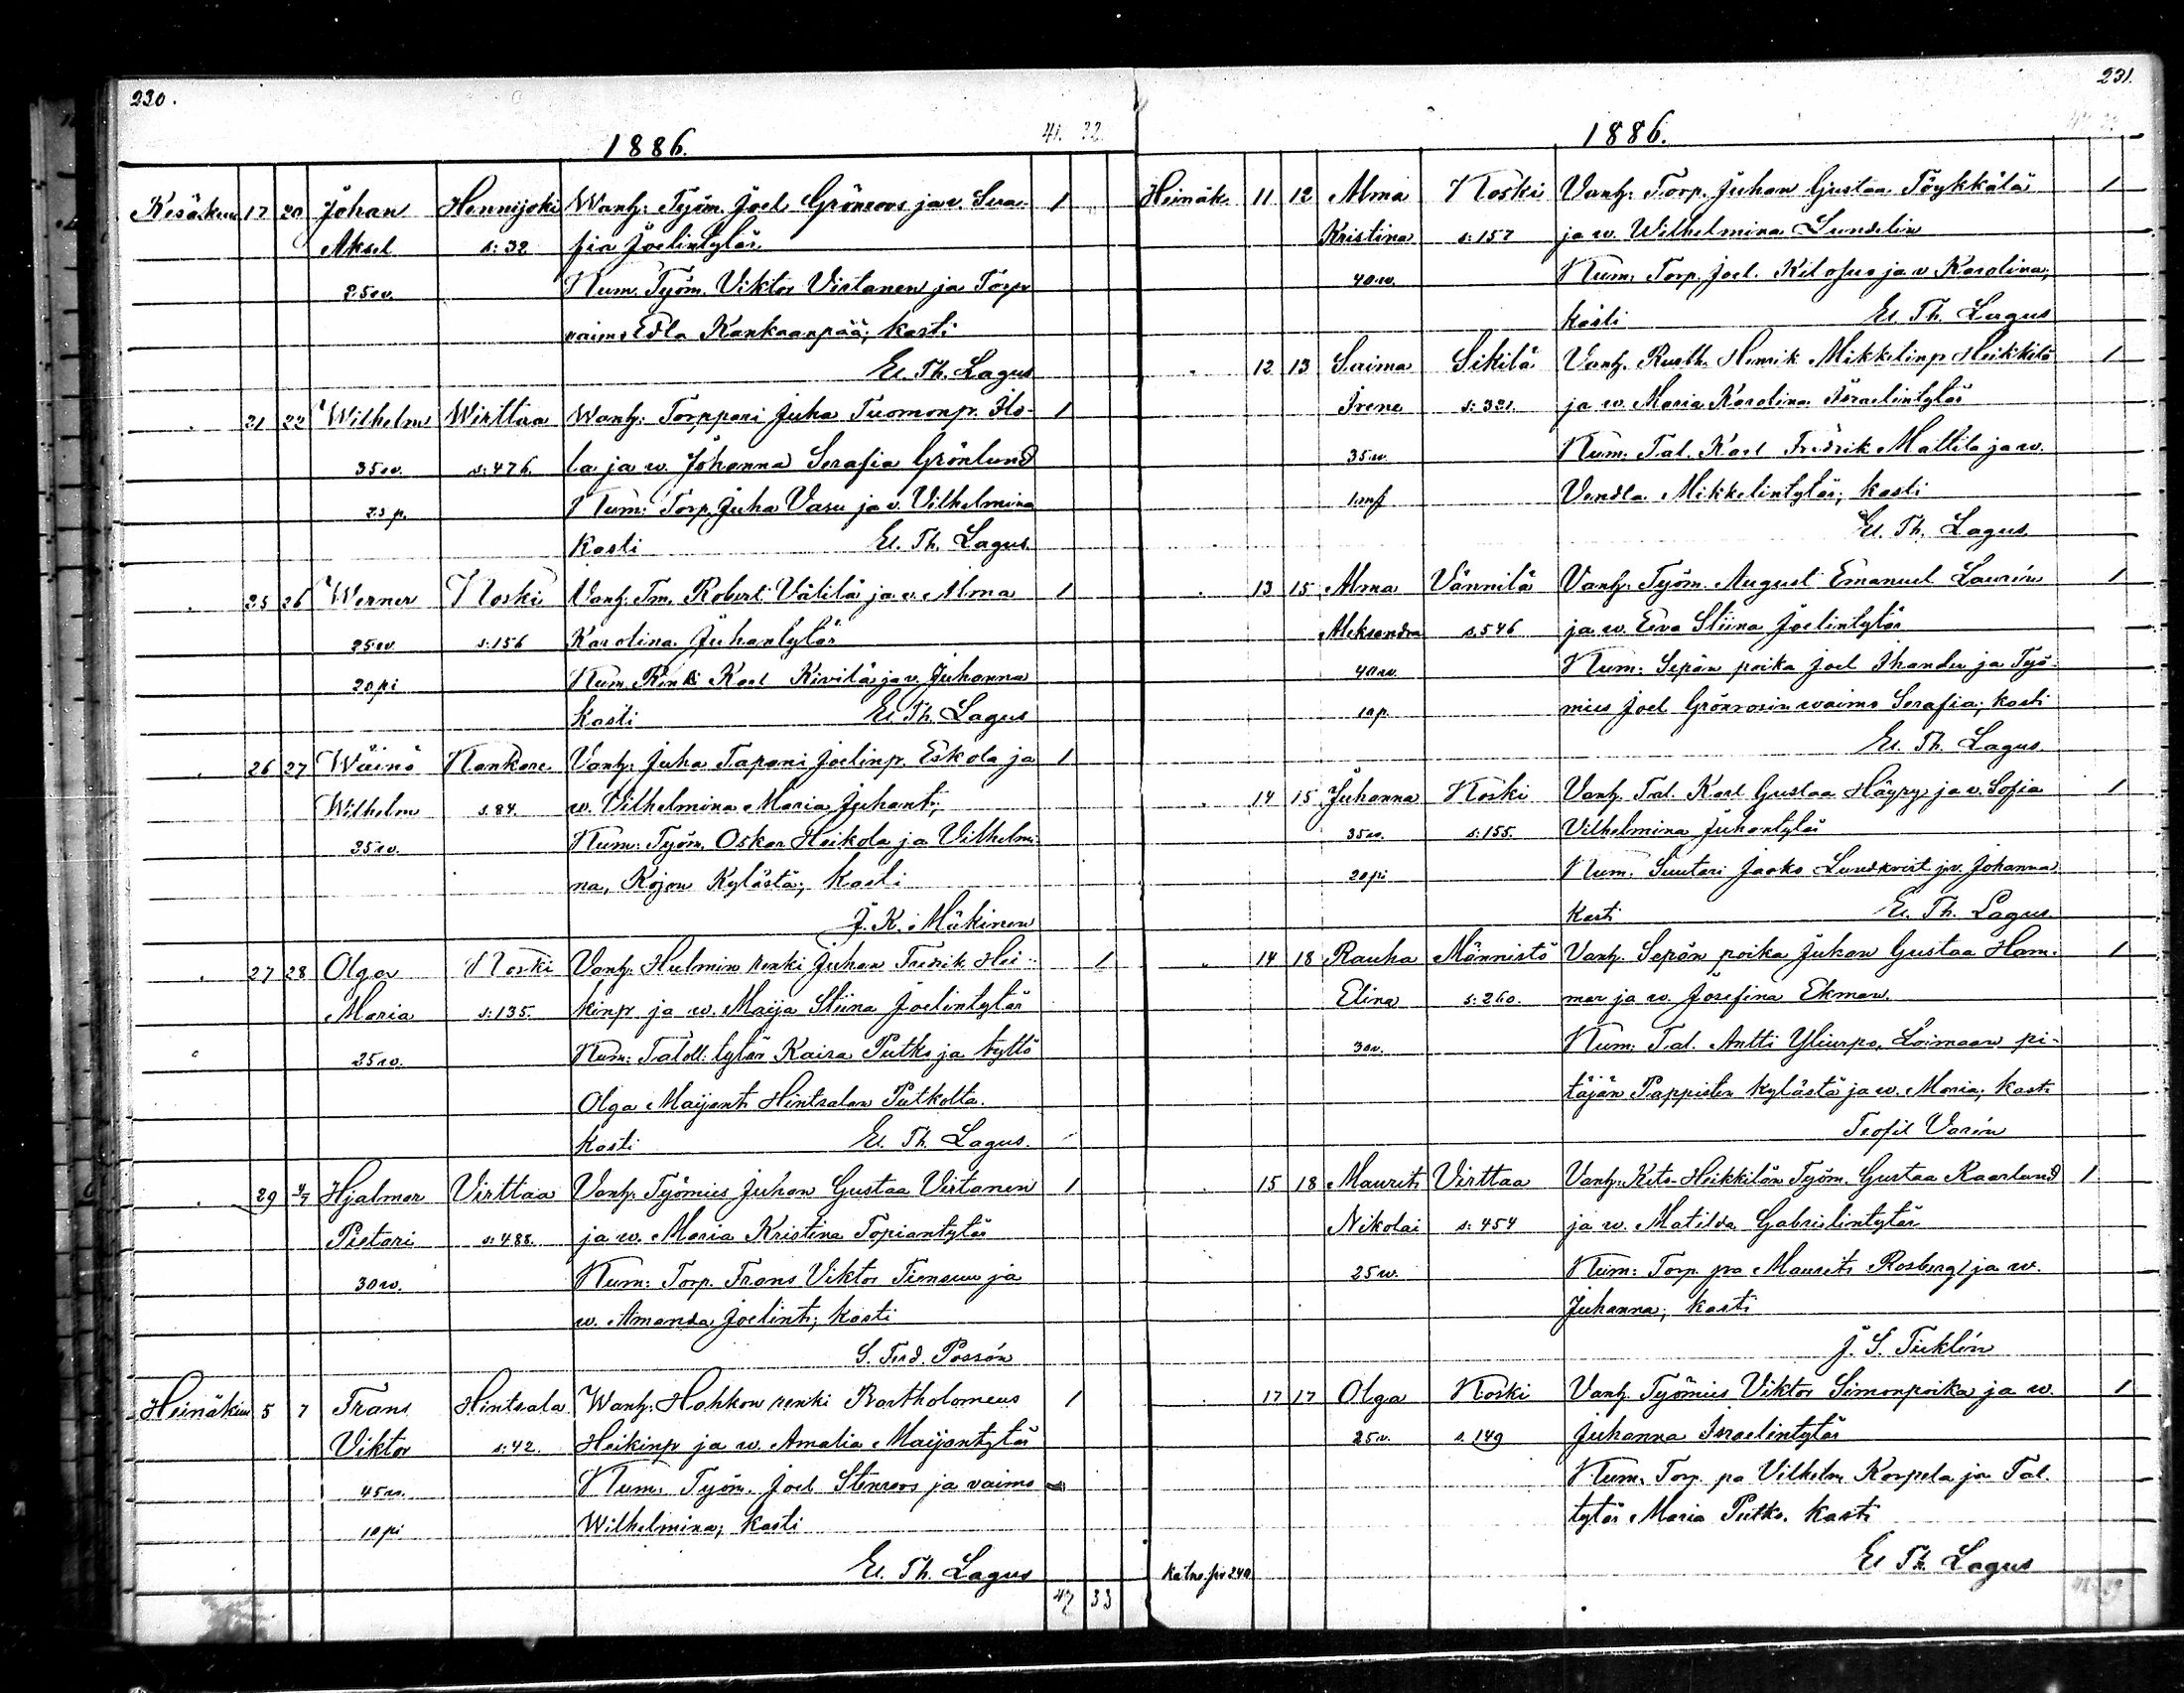 230.
1886.
41. 32.
Kesäkuu 17 20 Johan Hennijoki Wanh: Työm. Joel Grönroos ja v. Sera- 1
Aksel s: 32 fia Joelintytär
25 v. Kum. Työm. Viktor Virtanen ja Torp
vaimo Edla Kankaanpää; kasti
El. Th. Lagus
21 22 Wilhelm Wirttaa Wanh: Torppari Juha Tuomonp. Ho- 1
35 v. s: 476. la ja w. Johanna Serafia Grönlund
23 p. Kum: Torp. Juha Vasu ja v. Vilhelmina
kasti El. Th. Lagus.
25 26 Werner Koski Vanh. Tm. Robert Välilä ja v. Alma 1
25 v. s: 156 Karolina Juhantytär
20 pi Kum. Renki Karl Kivilä ja v. Juhanna
kasti El. Th. Lagus
26 27 Wäinö Kankare Vanh: Juha Tapani Joelinp. Eskola ja 1
Wilhelm s. 84. w. Vilhelmina Maria Juhant;
35 v. Kum: Työm. Oskar Heikola ja Vilhelmi-
na, Kojon Kylästä; kasti
J. K. Mäkinen
27 28 Olga Koski Vanh. Hulmin renki Juhan Fredrik Hei- 1
Maria s: 135. kinp ja w. Maija Stiina Joelintytär
25 v. Kum: Taloll: tytär Kaisa Putko ja tyttö
Olga Maijant. Hintsalan Putkolta.
kasti El. Th. Lagus.
29 4/7 Hjalmar Virttaa Vanh. Työmies Juhan Gustaa Virtanen 1
Pietari s: 488. ja w. Maria Kristina Topiantytär
30 v. Kum: Torp. Frans Viktor Tiensuu ja
w. Amanda Joelint; kasti
S. Ferd. Possén
Heinäkuu 5 7 Frans Hintsala Wanh: Hohkon renki Bartholomeus 1
Viktor s: 42. Heikinp ja w. Amalia Maijantytär
45 v. Kum: Työm. Joel Stenroos ja vaimo
10 pi Wilhelmina; kasti
El. Th. Lagus
47 33
231.
1886.
Heinäk. 11 12 Alma Koski Vanh: Torp. Juhan Gustaa Töykkälä 1
Kristina s: 157 ja w. Wilhelmina Lundelin
40 v. Kum: Torp. Joel. ja v Karolina,
kasti El. Th. Lagus
12 13 Saima Sikilä Vanh. Rusth. Henrik Mikkelinp Heikkilä 1
Irene s: 321. ja w. Maria Karolina Israelintytär
35 v. Kum. Tal. Karl Fredrik Mattila ja w.
1 mf Vendla Mikkelintytär; kasti
El. Th. Lagus
13 15 Alma Vännilä Vanh: Työm. August Emanuel Laurén 1
Aleksandra s. 546 ja w. Eeva Stiina Joelintytär
40 v. Kum: Sepän poika Joel Thander ja Työ-
10 p. mies Joel Grönroosin waimo Serafia; kasti
El. Th. Lagus
14 15 Juhanna Koski Vanh. Tal. Karl Gustaa Häyry ja v. Sofia 1
35 v. s: 155. Vilhelmina Juhantytär
20 pi Kum. Suutari Jaako Lundkvist ja v. Johanna
kasti El. Th. Lagus.
14 18 Rauha Männistö Vanh. Sepän poika Juhan Gustaa Ham- 1
Elina s: 260. mar ja w. Josefina Ekman.
30 v. Kum: Tal. Antti Yliurpo, Loimaan pi-
täjän Pappisten kylästä ja w. Maria; kasti
Teofil Varén
15 18 Maurits Virttaa Vanh: Kito-Heikkilän Työm. Gustaa Kaarlund 1
Nikolai s: 454 ja w. Matilda Gabrielintytär
25 w. Kum: Torp. pa Maurits Rosberg ja w.
Juhanna; kasti
J. S. Tuklén
17 17 Olga Koski Vanh. Työmies Viktor Simonpoika ja w. 1
25 v. s. 149 Juhanna Israelintytär
Kum. Torp. pa Vilhelm Korpela ja Tal.
tytär Maria Putko. kasti
El Th. Lagus
Katso siv 240